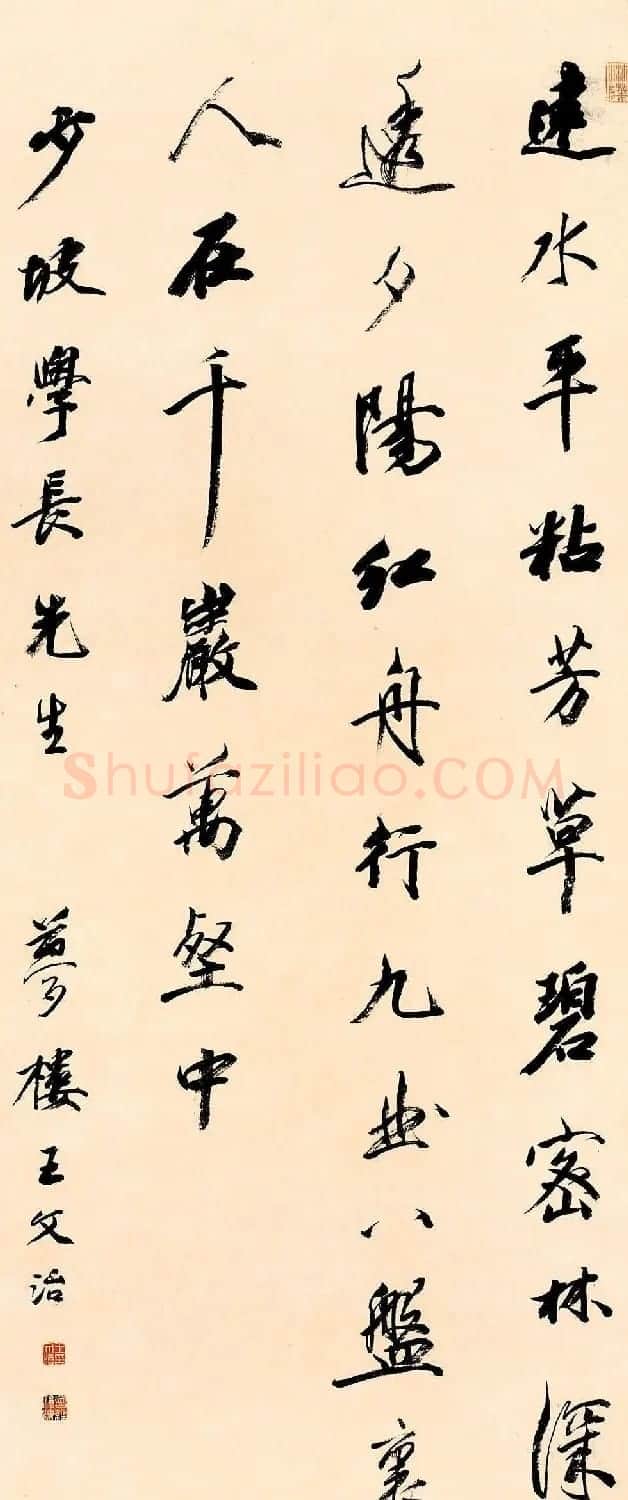 遠水平粘芳草碧密林深
透夕陽紅舟行九曲八盤裏
人在千巖萬壑中
少坡學長先生
夢樓王文治
Shufaziliao.COM